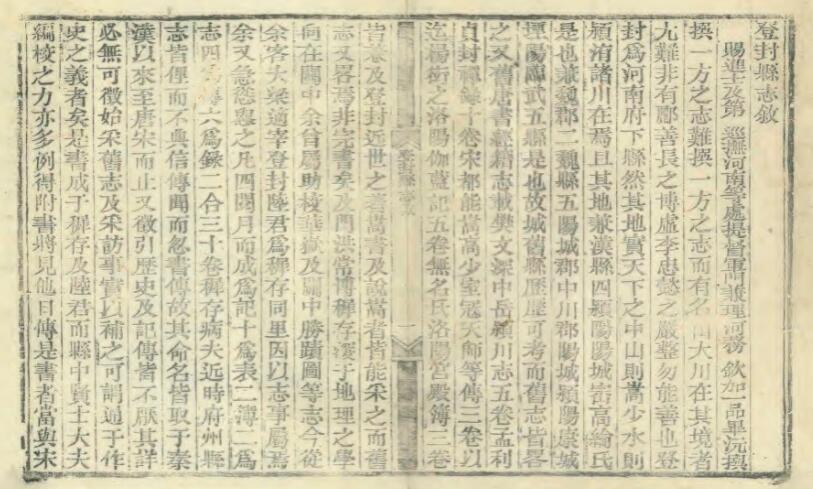 登封縣志敘
賜進士及第 巡撫河南等處提督軍門兼理河務 欽加一品畢沅撰
撰一方之志難撰一方之志而有名山大川在其境者
尤難非有酈善長之博盧李忠懿之嚴整勿能善也登
封為河南府下縣然其地實天下之中山則嵩少水則
潁洧諸川在焉且其地兼漢縣四潁陽陽城崈高綸氏
是也兼魏郡二魏縣五陽城郡中川郡陽城潁陽康城
堙陽臨武五縣是也故城舊縣歷歷可考而舊志皆畧
之又舊唐書經籍志載樊文深中岳潁川志五卷孟利
貞封禪錄十卷宋都能嵩高少室寇天師等傳三卷以
迄楊衒之洛陽伽藍記五卷無名氏洛陽宮殿簿三卷
皆兼及登封近世之言嵩書及說嵩者皆能采之而舊
志又畧焉非完書矣及門洪常博稚存深于地理之學
向在關中余曾屬助校華嶽及關中勝蹟圖等志今從
余客大梁適宰登封陸君為稚存同里因以志事屬焉
余又急慫恿之凡四閱月而成為記十為表二簿一為
志四為傳六為錄二合三十卷稚存病夫近時府州縣
志皆俚而不典信傳聞而忽書傳故其命名皆取于秦
漢以來至唐宋而止又徵引歷史及記傳皆不厭其詳
必無可徵始采舊志及采訪事實以補之可謂通于作
史之義者矣是書成于稚存及陸君而縣中賢士大夫
編校之力亦多例得附書將見他日傳是書者當與宋